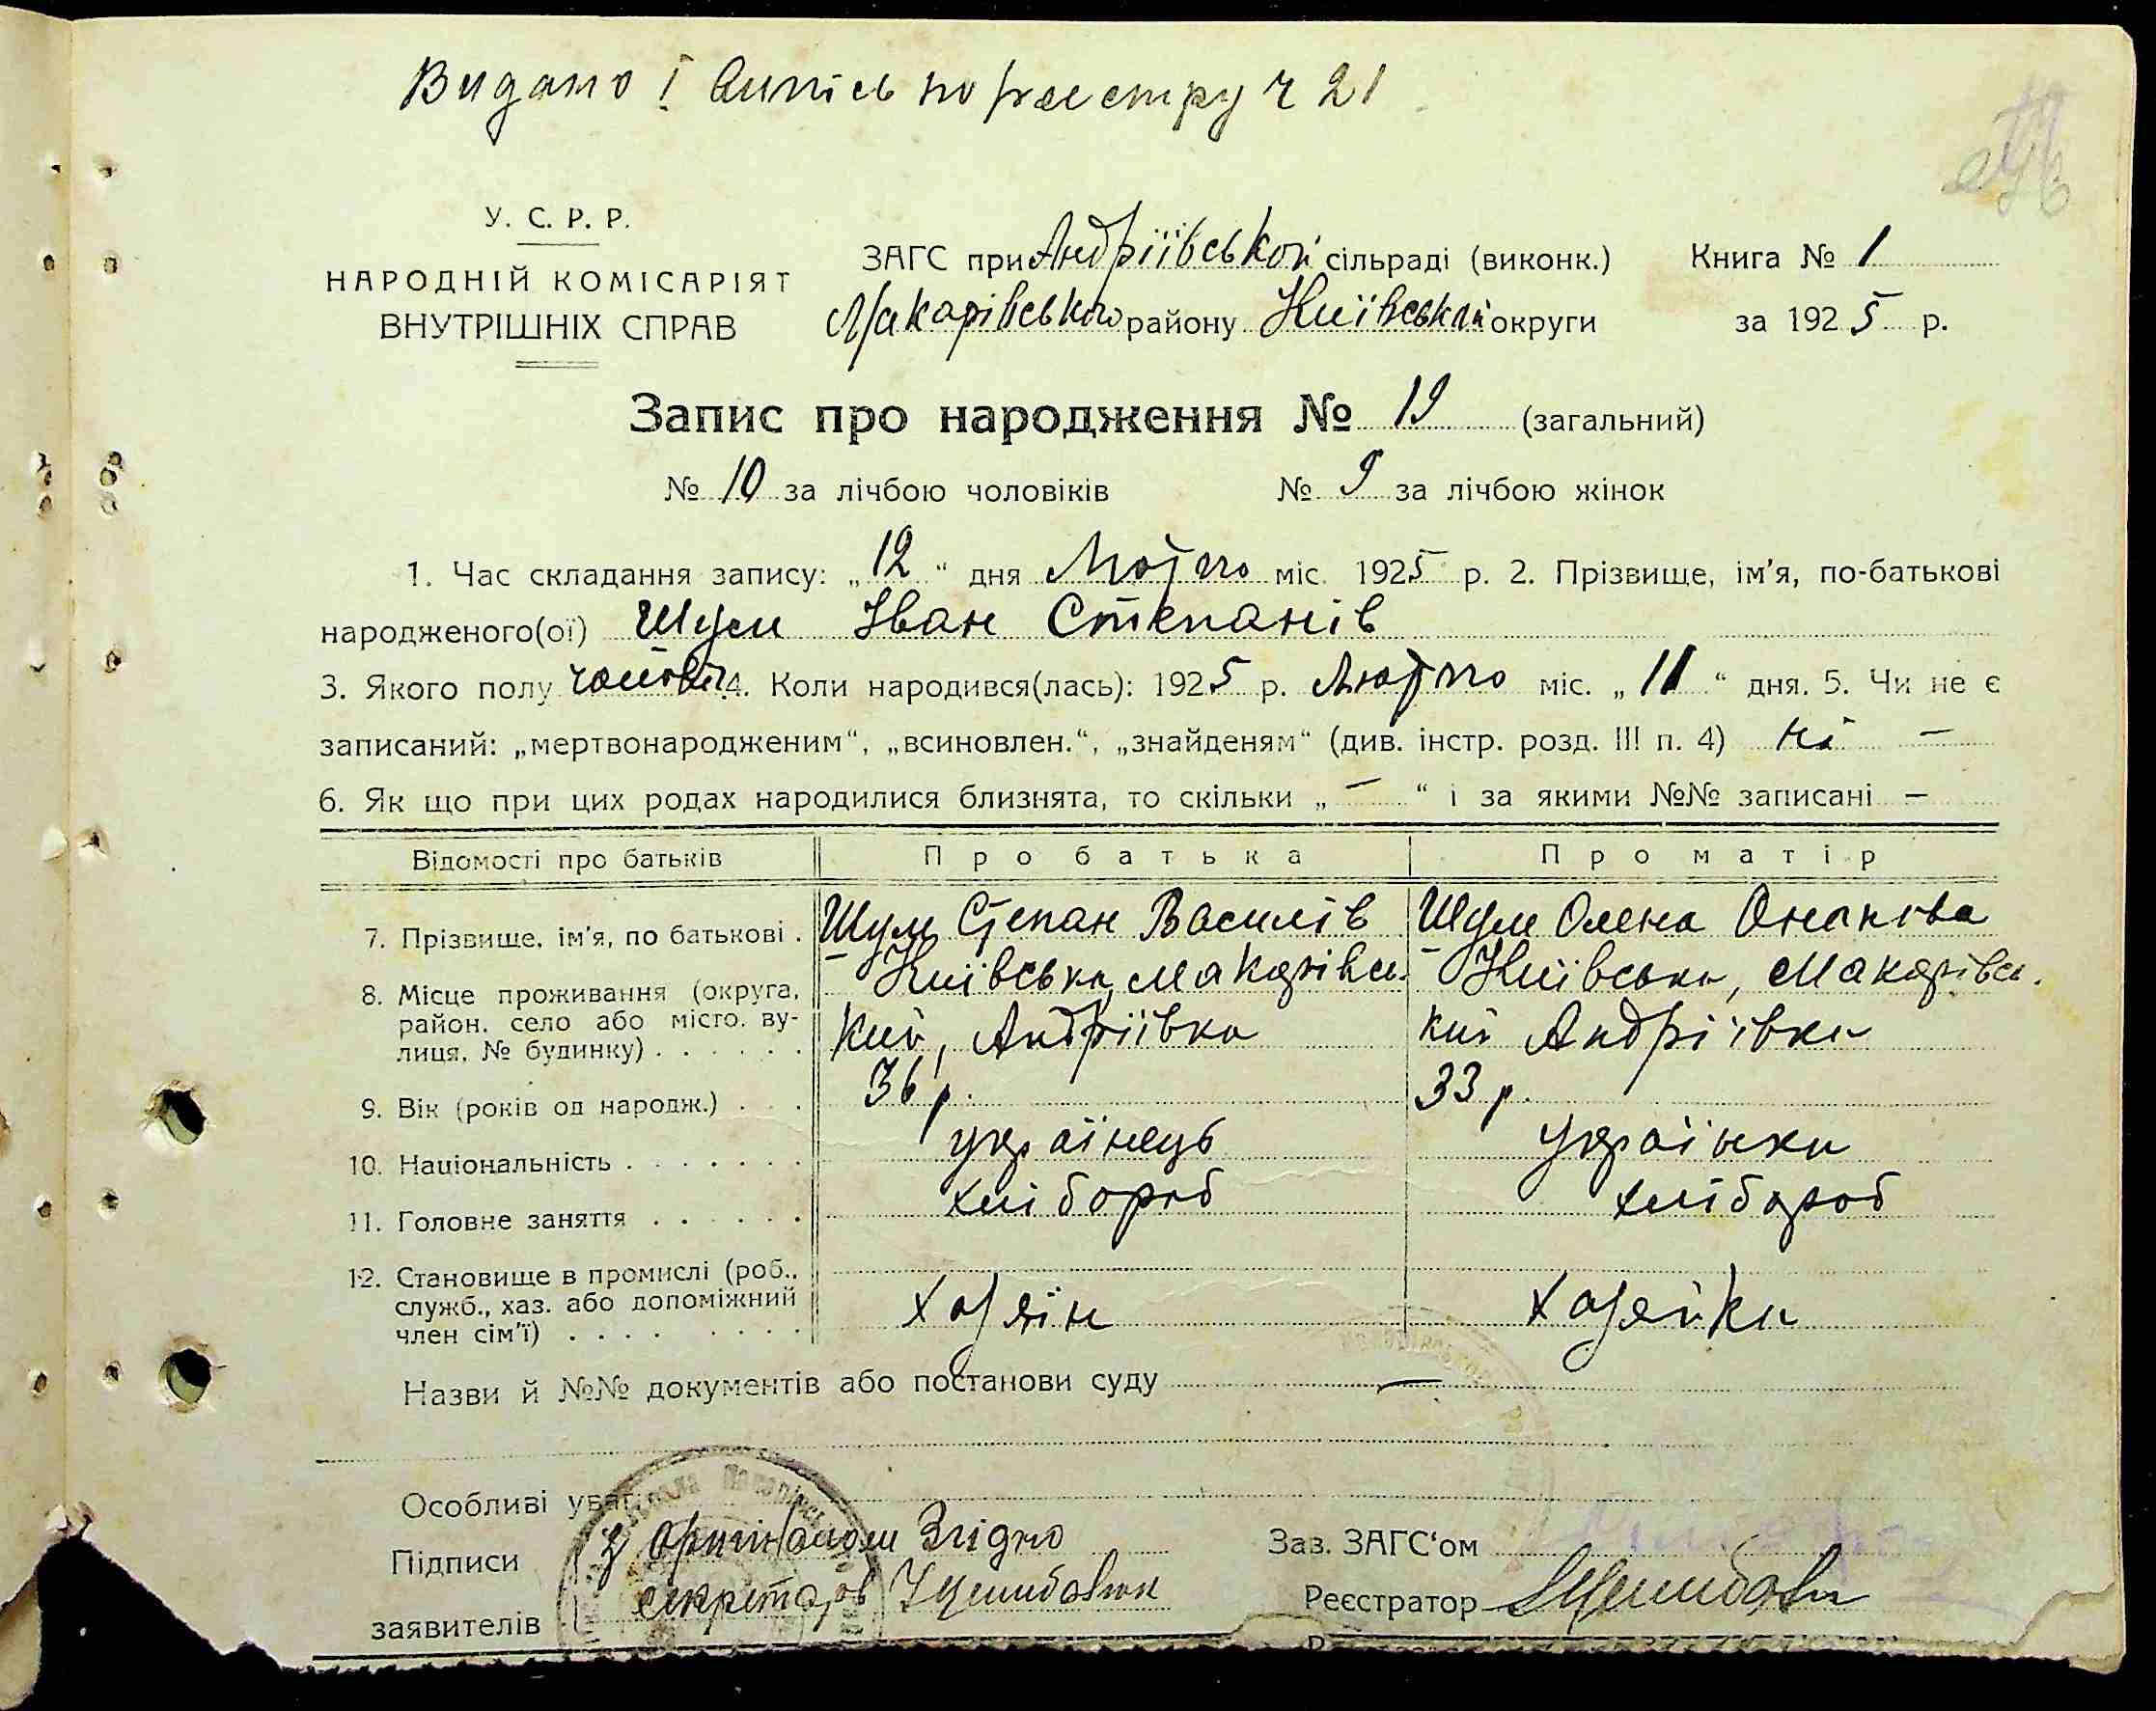 Видано 1 Випісь по реєстру ч 21
У. С. Р. Р.
НАРОДНІЙ КОМІСАРІЯТ
ВНУТРІШНІХ СПРАВ
ЗАГС при Андріївській сільраді (виконк.)
Макарівського району Київської округи
Книга № 1
за 1925 р.
Запис про народження № 19 (загальний)
№ 10 за лічбою чоловіків № 9 за лічбою жінок
1. Час складання запису: „12“ дня Лютго міс. 1925 р. 2. Прізвище, ім'я, по-батькові
народженого(ої) Шум Іван Степанів
3. Якого полу чолов. 4. Коли народився(лась): 1925 р. Лютго міс. „11“ дня. 5. Чи не є
записаний: „мертвонародженим“, „всиновлен.“, „знайденям“ (див. інстр. розд. III п. 4) ні —
6. Як що при цих родах народилися близнята, то скільки „ — “ і за якими №№ записані —
Відомості про батьків Про батька Про матір
7. Прізвище, ім'я, по батькові . Шум Степан Василів Шум Олена Опанова
8. Місце проживання (округа, Київська, Макарівсь- Київська, Макарівсь-
район, село або місто, ву- кий, Андріївка кий Андріївка
лиця, № будинку) . . . . . .
9. Вік (років од народж.) . . . 36 р. 33 р.
10. Національність . . . . . . . українець українка
11. Головне заняття . . . . . . хлібороб хлібороб
12. Становище в промислі (роб.,
служб., хаз. або допоміжний хозяїн хозяйка
член сім'ї) . . . . . . . .
Назви й №№ документів або постанови суду —
Особливі уваги
Підписи З оригіналом Згідно
заявителів секретарь
Зав. ЗАГС'ом
Реєстратор